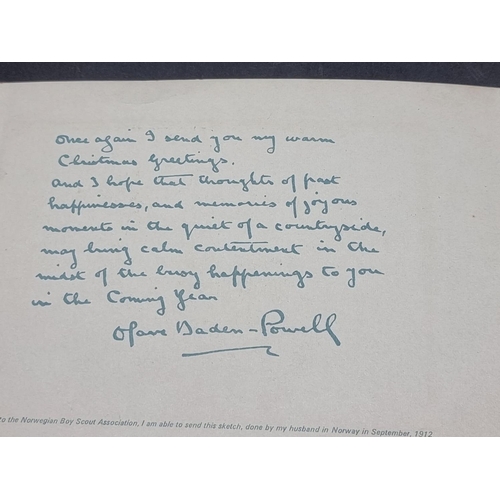 Once again I send you my warm
Christmas Greetings.
and I hope that thoughts of past
happinesses, and memories of joyous
moments in the quiet of a countryside,
may bring calm contentment in the
midst of the busy happenings to you
in the Coming Year
Olave Baden-Powell
to the Norwegian Boy Scout Association, I am able to send this sketch, done by my husband in Norway in September, 1912